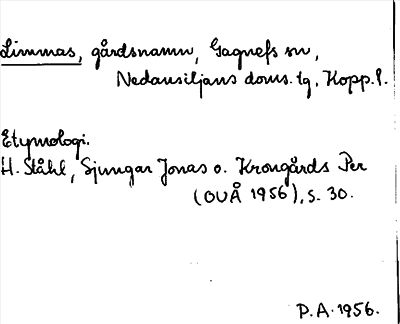 Limmas, gårdsnamn, Gagnefs sn,
Nedansiljans doms. lg, Kopp. l.
Etymologi.
H. Ståhl, Sjungar Jonas o. Krongårds Per
(OUÅ 1956), s. 30.
P.A. 1956.